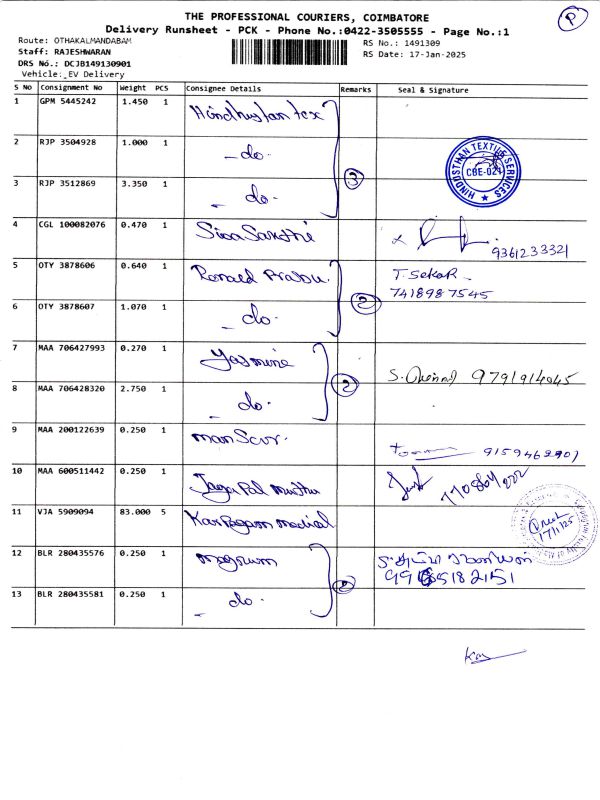 P
THE PROFESSIONAL COURIERS, COIMBATORE
Delivery Runsheet - PCK - Phone No.:0422-3505555 - Page No.:1
Route: OTHAKALMANDABAM
RS No.: 1491309
Staff: RAJESHWARAN
RS Date: 17-Jan-2025
DRS No.: DCJB149130901
Vehicle: EV Delivery
S No Consignment No Weight PCS Consignee Details Remarks Seal & Signature
1 GPM 5445242 1.450 1 Hindhustan tex
2 RJP 3504928 1.000 1 - do -
HINDUSTHAN TEXTILE SERVICES
CBE-021
3 RJP 3512869 3.350 1 - do - 3
4 CGL 100082076 0.470 1 Siva Sakthi 9361233321
5 OTY 3878606 0.640 1 Ronald Prabu T. Sekar
7418987545
6 OTY 3878607 1.070 1 - do - 2
7 MAA 706427993 0.270 1 Yasmine
8 MAA 706428320 2.750 1 - do - 2
9 MAA 200122639 0.250 1
10 MAA 600511442 0.250 1
11 VJA 5909094 83.000 5 Karpagam medical
17/1/25
12 BLR 280435576 0.250 1 magnum
13 BLR 280435581 0.250 1 - do - 2